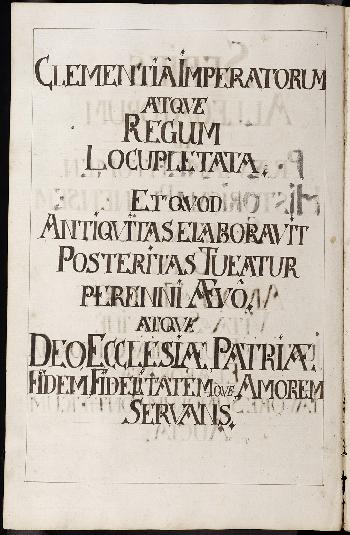 CLEMENTIÂ IMPERATORUM
ATQVE
REGUM
LOCUPLETATA.
ET QVOD
ANTIQVITAS ELABORAVIT
POSTERITAS TUEATUR
PERENNI ÆVO.
ATQVE
DEO ECCLESIÆ, PATRIÆ,
FIDEM, FIDELITATEMQVE, AMOREM
SERVANS.